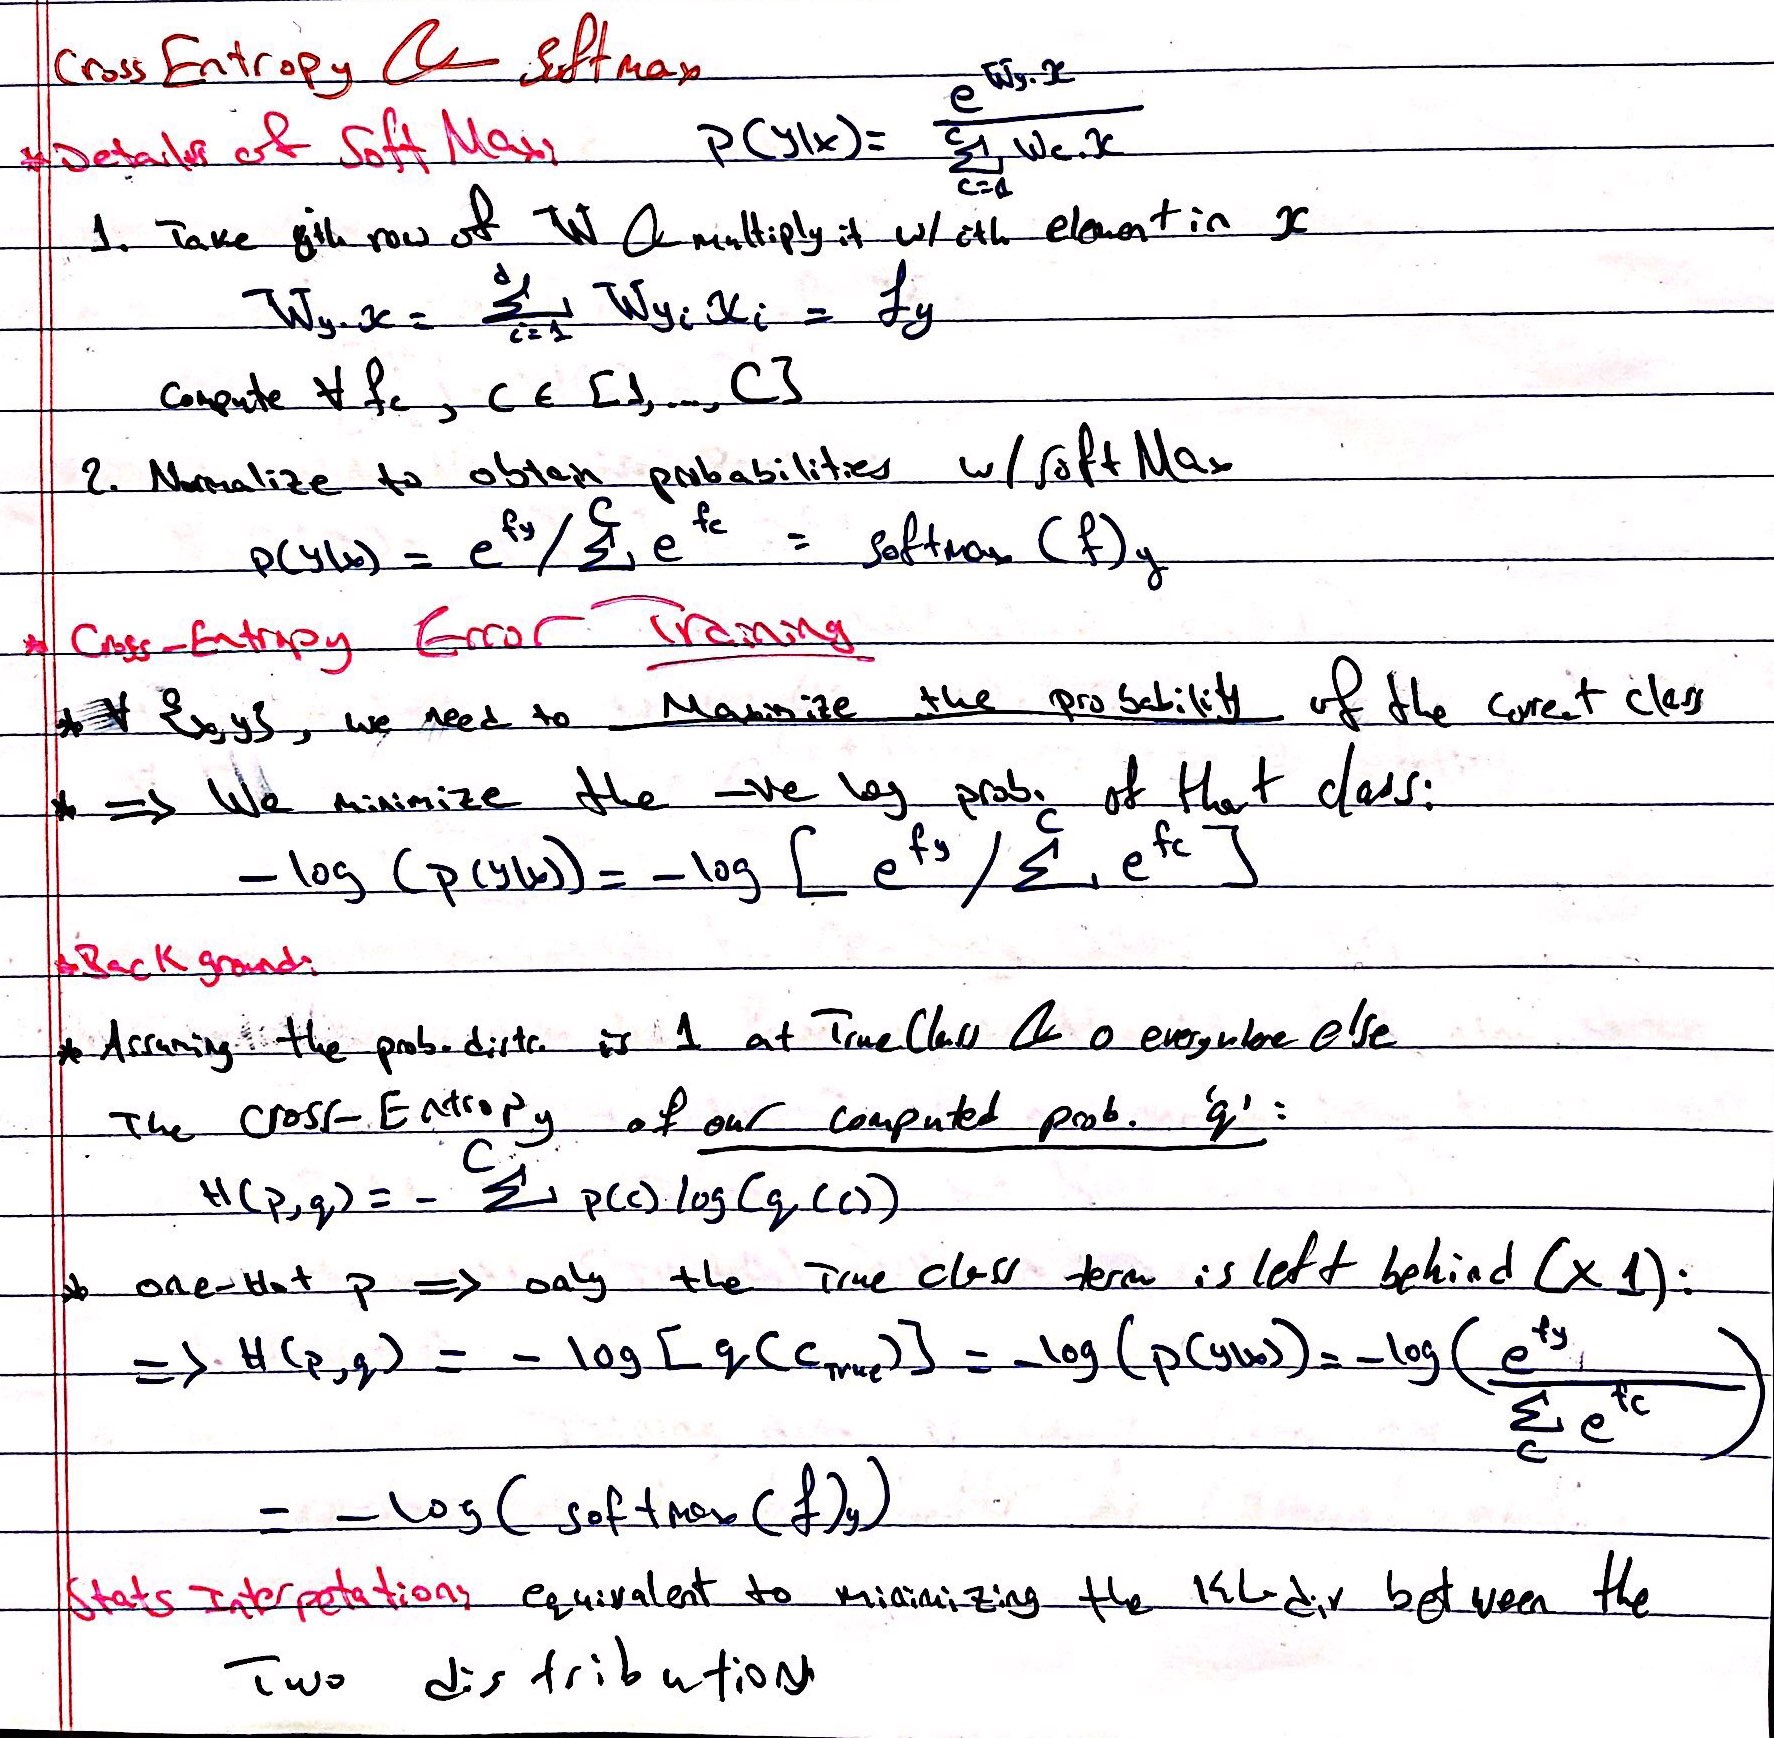 Cross Entropy & Softmax
* Details of Soft Max: P(y|x) = e^{W_y.x} / Σ_{c=1}^{C} W_c.x
1. Take yth row of W & multiply it w/ ith element in x
W_y.x = Σ_{i=1}^{d} W_{yi} x_i = f_y
Compute ∀ f_c , c ∈ [1, ..., C]
2. Normalize to obtain probabilities w/ Soft Max
p(y|x) = e^{f_y} / Σ^{C} e^{f_c} = softmax (f)_y
* Cross-Entropy Error Training
* ∀ {x,y}, we need to Maximize the probability of the correct class
* => We minimize the -ve log prob. of that class:
-log (p(y|x)) = -log [ e^{f_y} / Σ^{C} e^{f_c} ]
* Background:
* Assuming the prob. distr. is 1 at True Class & 0 everywhere else
The Cross-Entropy of our computed prob. 'q':
H(p,q) = - Σ^{C} p(c) log(q(c))
* one-Hot p => only the True class term is left behind (x 1):
=> H(p,q) = - log [q(C_{True})] = -log (p(y|x)) = -log ( e^{f_y} / Σ_{c} e^{f_c} )
= -log( softmax (f)_y)
Stats Interpetation: equivalent to minimizing the KL-div between the
Two distributions